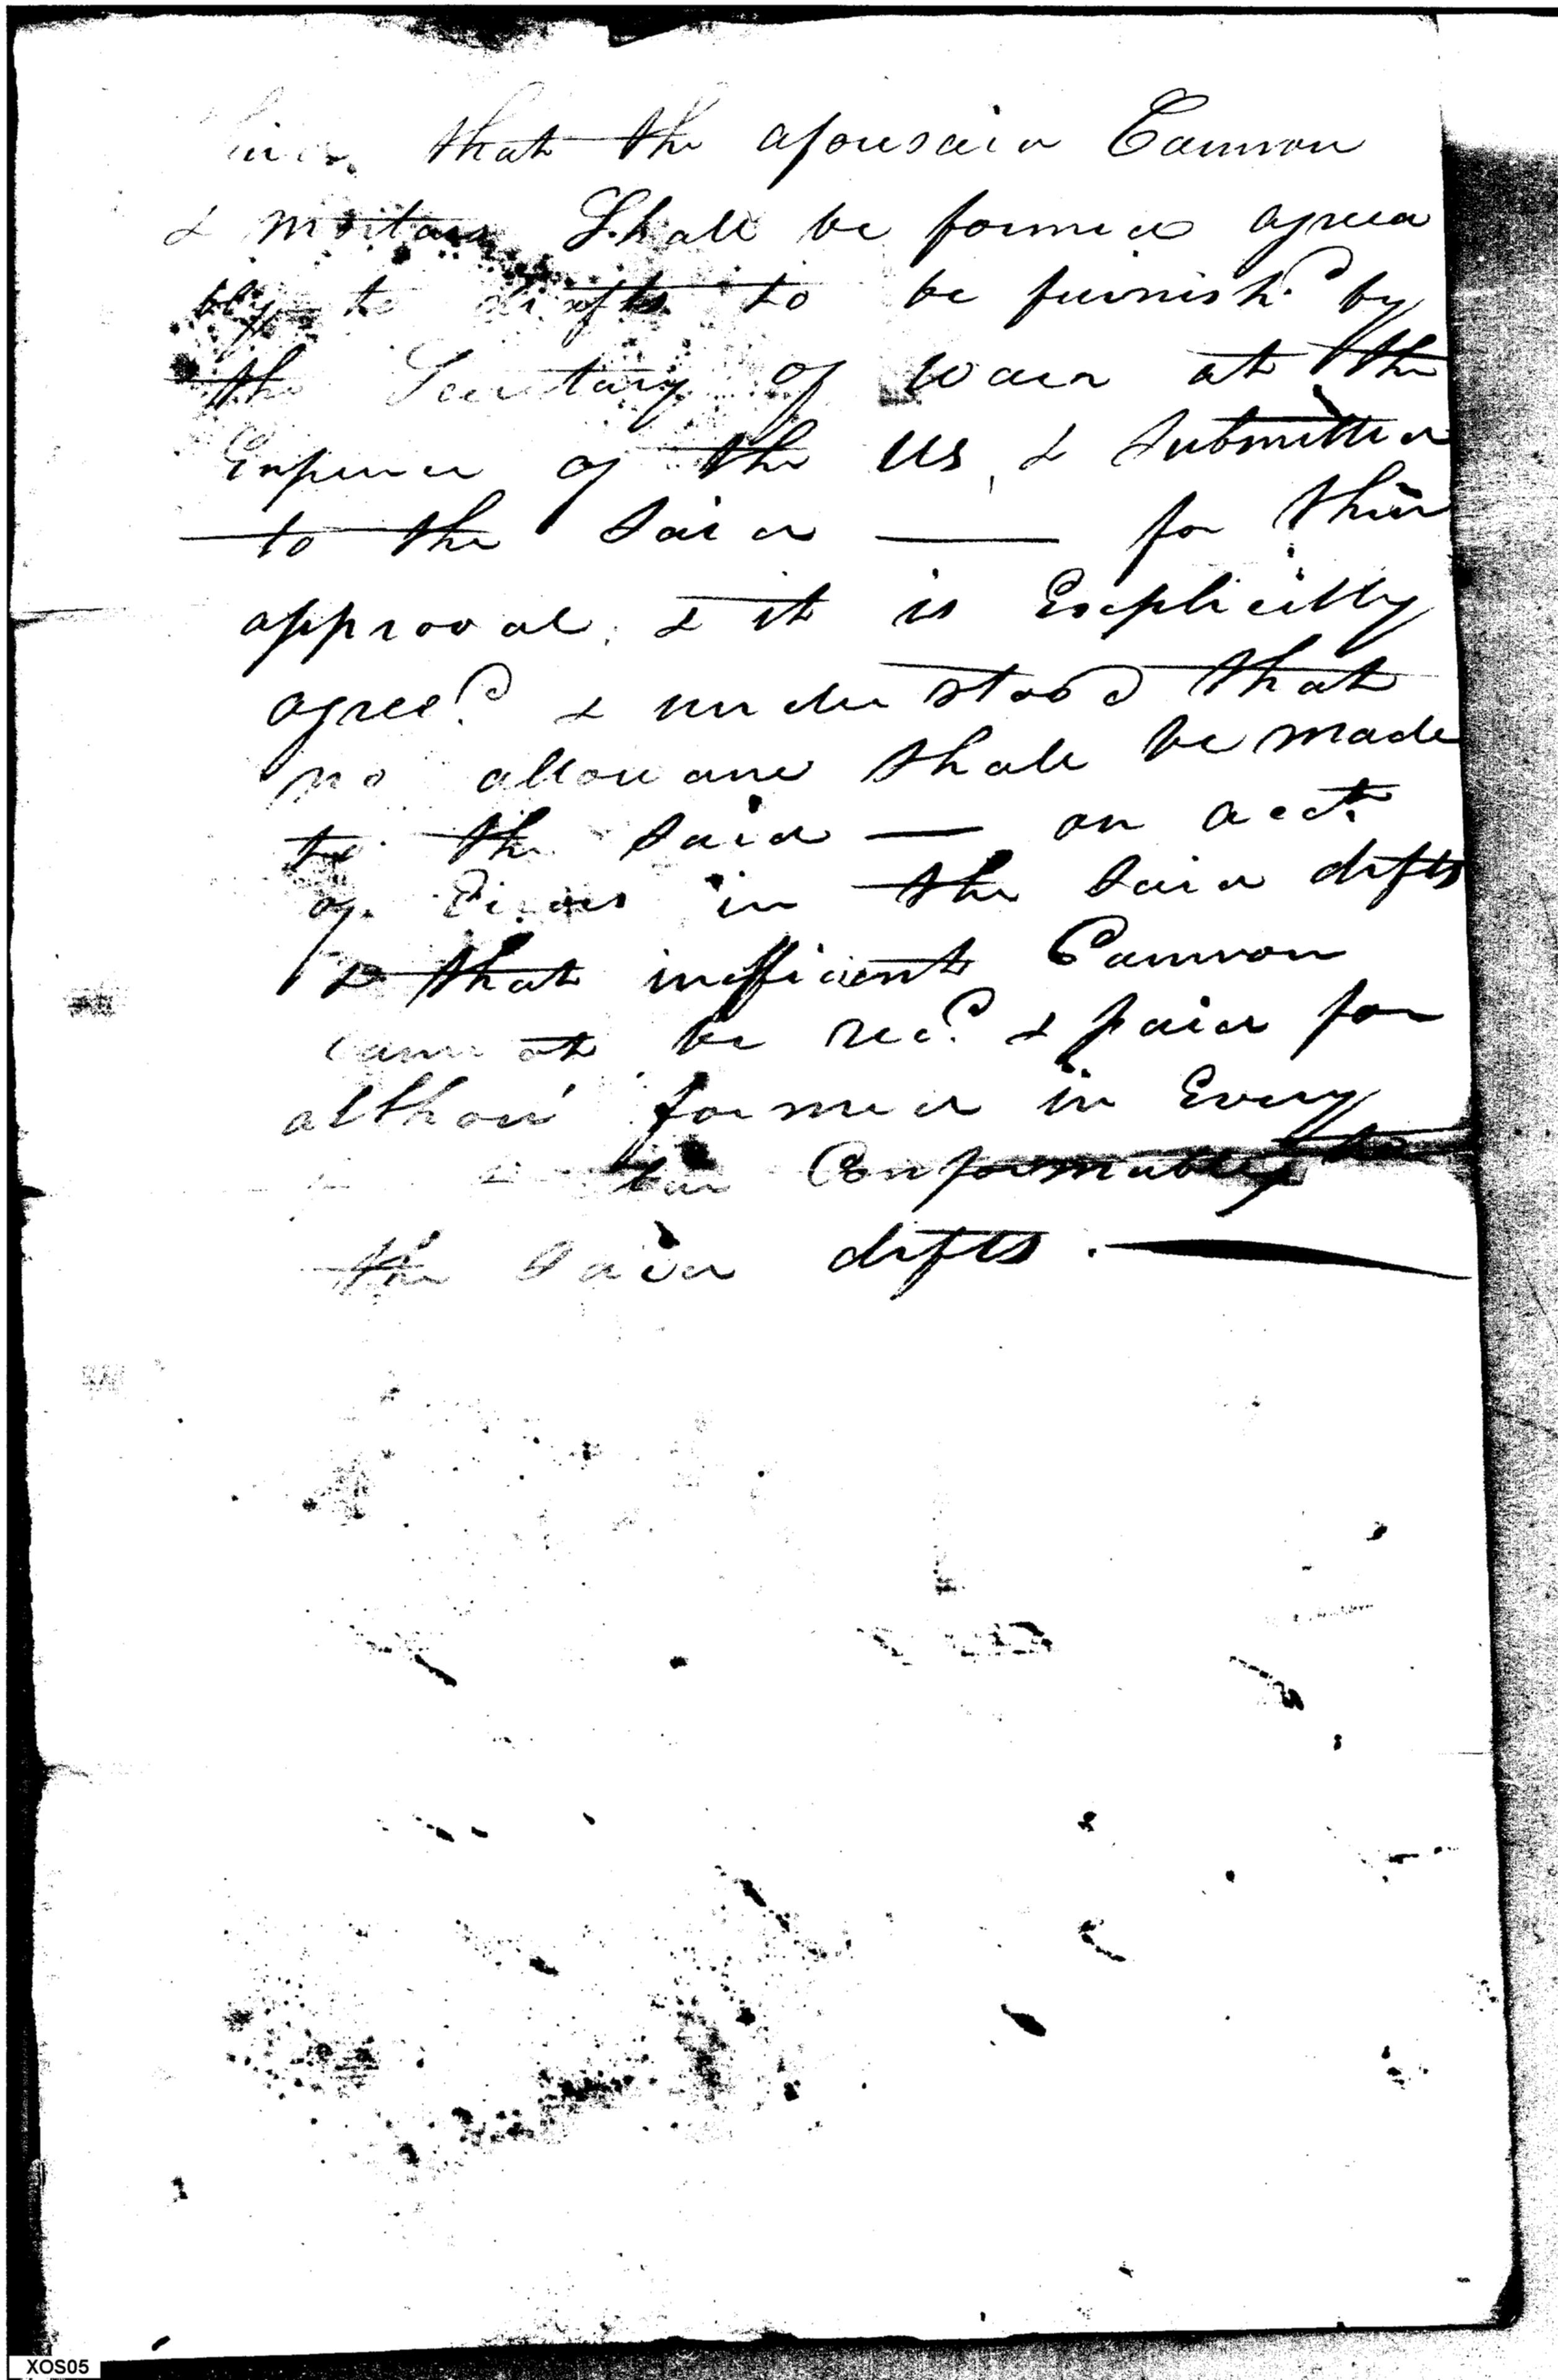 that the aforesaid Cannon
& mortars Shall be formed agrea
bly to drafts to be furnishd by
the Secretary of War at the
Expence of the US, & Submitted
to the Said —— for their
approval, & it is Explicitly
agreed & understood that
no allowance shall be made
to the Said — on acct.
of in the Said drfts
& that inefficient Cannon
cannot be recd & paid for
althou' formed in Every
Conformable to
the Said drfts. ——
XOS05